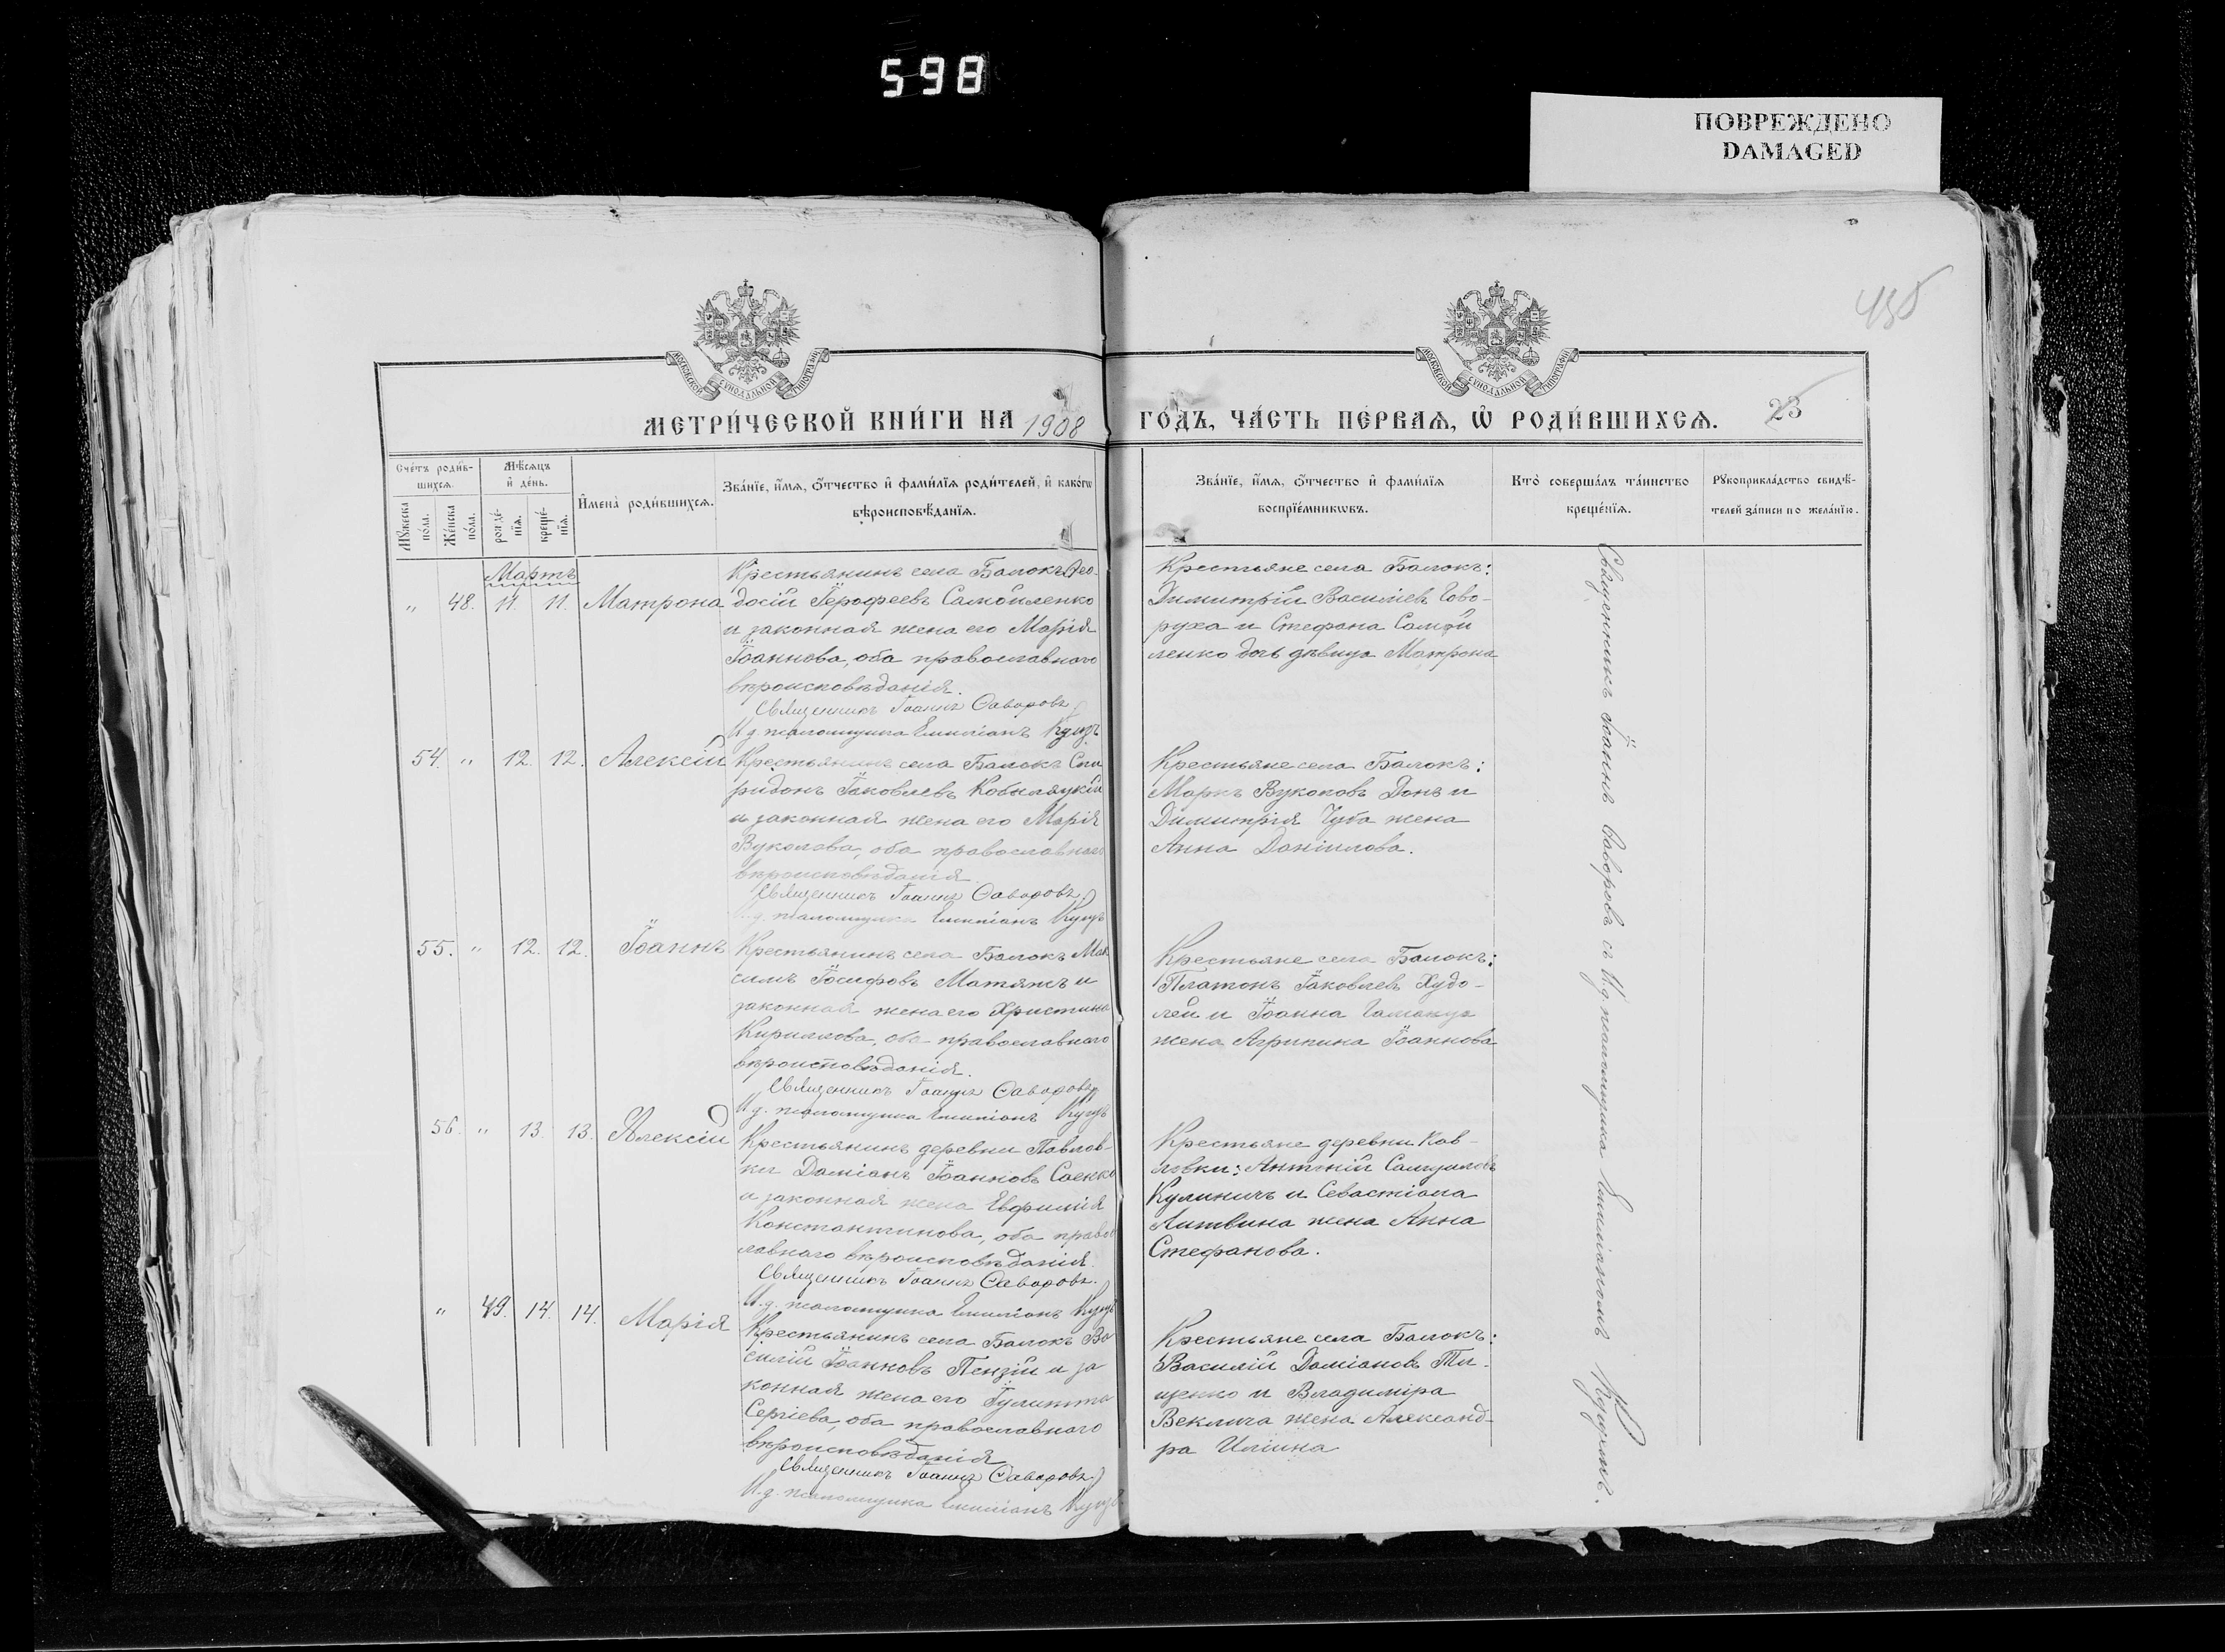 598
ПОВРЕЖДЕНО
DAMAGED
435
МОСКОВСКОЙ СѴНОДАЛЬНОЙ ТИПОГРАФІИ
МОСКОВСКОЙ СѴНОДАЛЬНОЙ ТИПОГРАФІИ
МЕТРИ́ЧЕСКОЙ КНИ́ГИ НА 1908
ГО́ДЪ, ЧА́СТЬ ПЕ́РВАѦ, Ѡ҆ РОДИ́ВШИХСѦ.
23
Сче́тъ роди́в-
шихсѧ.
Мꙋ́жеска по́ла.
Же́нска по́ла.
Мѣ́сѧцъ
и҆ де́нь.
рожде́-нїѧ.
креще́-нїѧ.
И҆мена̀ роди́вшихсѧ.
Зва́нїе, и҆́мѧ, ѻ҆́тчество и҆ фами́лїѧ роди́телей, и҆ како́гѡ
вѣроисповѣ́данїѧ.
Зва́нїе, и҆́мѧ, ѻ҆́тчество и҆ фами́лїѧ
воспрїе́мникѡвъ.
Кто̀ соверша́лъ та́инство
креще́нїѧ.
Рꙋкоприкла́дство свидѣ́-
телей за́писи по жела́нїю.
Мартъ
" 48. 11. 11. Матрона
Крестьянинъ села Балокъ Ѳео-
досій Іерофеевъ Самойленко
и законная жена его Марія
Іоаннова, оба православнаго
вѣроисповѣданія.
Священникъ Іоаннъ Саворовъ
И. д. псаломщика Емиліанъ Куцъ
Крестьяне села Балокъ:
Димитрій Василіевъ Гово-
руха и Стефана Самой
ленко дочь дѣвица Матрона
54. " 12. 12. Алексій
Крестьянинъ села Балокъ Спи
ридонъ Іаковлевъ Кобыляцкій
и законная жена его Марія
Вуколова, оба православнаго
вѣроисповѣданія
Священникъ Іоаннъ Саворовъ
И. д. псаломщика Емиліанъ Куцъ
Крестьяне села Балокъ:
Маркъ Вуколовъ Донъ и
Димитрія Чуба жена
Анна Даніилова.
55. " 12. 12. Іоаннъ
Крестьянинъ села Балокъ Мак
симъ Іосифовъ Матяшъ и
законная жена его Христина
Кириллова, оба православнаго
вѣроисповѣданія.
Священникъ Іоаннъ Саворовъ
И. д. псаломщика Емиліанъ Куцъ
Крестьяне села Балокъ:
Платонъ Іаковлевъ Худо-
лей и Іоанна
жена Агрипина Іоаннова
56. " 13. 13. Алексій
Крестьянинъ деревни Павлов-
ки Даміанъ Іоанновъ Саенко
и законная жена Евфимія
Константинова, оба право
славнаго вѣроисповѣданія.
Священникъ Іоаннъ Саворовъ.
И. д. псаломщика Емиліанъ Куцъ
Крестьяне деревни Пав-
ловки: Антоній Самуиловъ
Кулиничъ и Севастіана
Литвина жена Анна
Стефанова.
" 49. 14. 14. Марія
Крестьянинъ села Балокъ Ва
силій Іоанновъ Пензій и за
конная жена его Іулитта
Сергіева, оба православнаго
вѣроисповѣданія
Священникъ Іоаннъ Саворовъ
И. д. псаломщика Емиліанъ Куцъ
Крестьяне села Балокъ:
Василій Даміановъ Ти-
щенко и Владиміра
Веклича жена Александ-
ра Иліина
Священникъ Іоаннъ Саворовъ съ И. д. псаломщика Емиліаномъ Куцомъ.